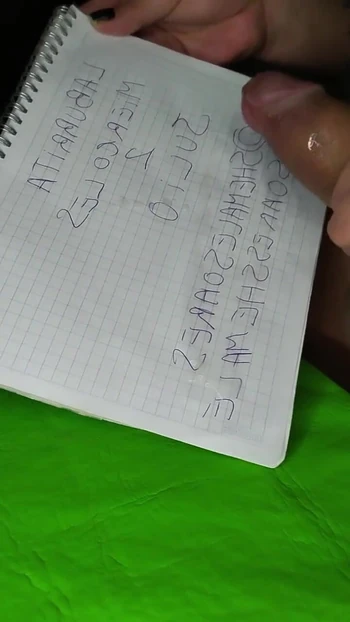 LABURRITA
MIERCOLES
2
JULIO
@SHEMALESOARES
SOARESSHEMALE